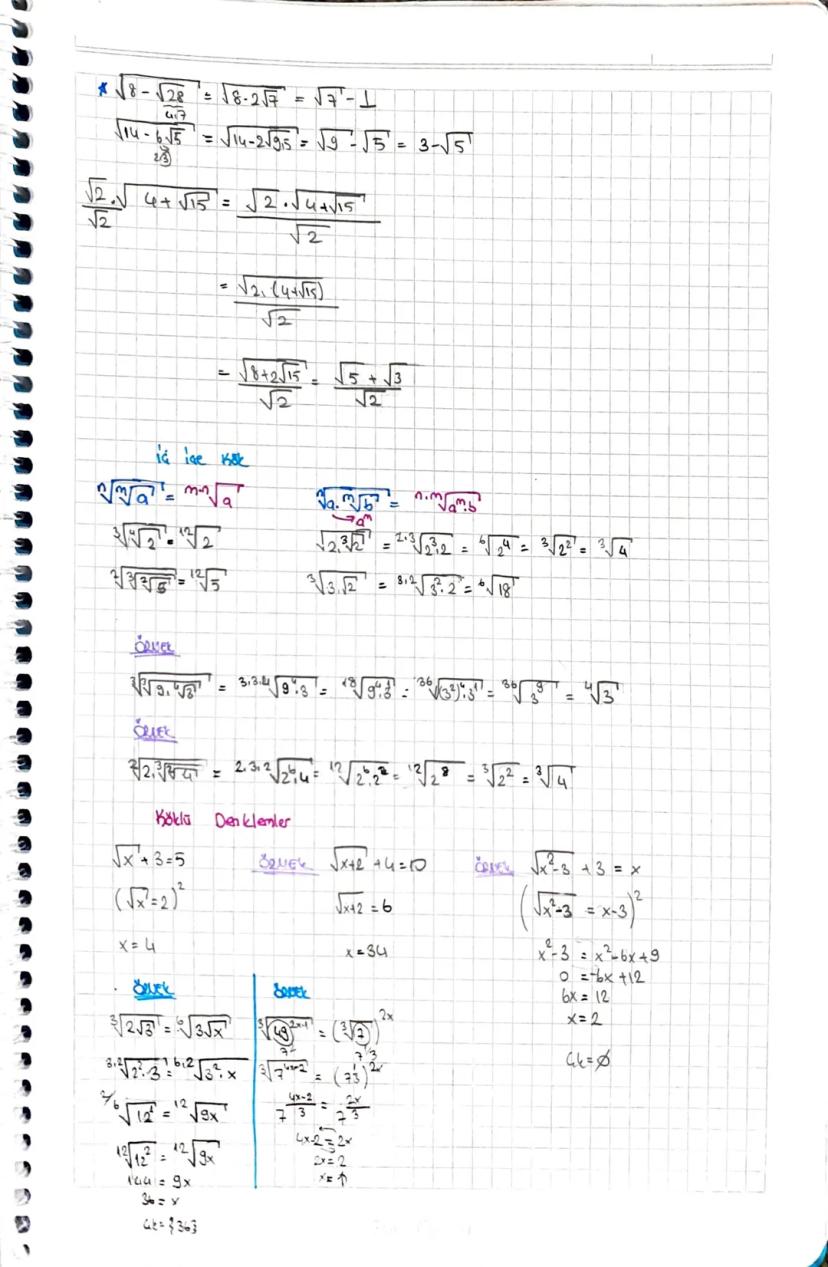 * √(8 - √28) = √(8-2√7) = √7 - 1
4.7
√(14 - 6√5) = √(14-2√9.5) = √9 - √5 = 3-√5
2.3
√2/√2 . √(4+√15) = (√2 . √(4+√15))/√2
= √(2.(4+√15))/√2
= √(8+2√15)/√2 = (√5 + √3)/√2
iç içe kök
ⁿ√(ᵐ√a) = ᵐ·ⁿ√a
ⁿ√(a.ᵐ√b) = ⁿ·ᵐ√(aᵐ.b)
→aᵐ
³√(⁴√2) = ¹²√2
√(2.³√2) = ²·³√(2³.2) = ⁶√(2⁴) = ³√(2²) = ³√4
²√(³√(²√5)) = ¹²√5
³√(3.√2) = ³·²√(3².2) = ⁶√18
ÖRNEK
³√(³√(9.⁴√3)) = ³·³·⁴√(9⁴.3) = ¹⁸√(9⁴.3¹) = ³⁶√((3²)⁴.3¹) = ³⁶√(3⁹) = ⁴√3
ÖRNEK
²√(2.³√(²√4)) = ²·³·²√(2⁶.4) = ¹²√(2⁶.2²) = ¹²√(2⁸) = ³√(2²) = ³√4
Köklü Denklemler
√x + 3 = 5
(√x = 2)²
x = 4
ÖRNEK √(x+2) + 4 = 10
√(x+2) = 6
x = 34
ÖRNEK √(x²-3) + 3 = x
(√(x²-3) = x-3)²
x²-3 = x²-6x+9
0 = -6x+12
6x = 12
x = 2
Çk = ∅
ÖRNEK
³√(2√3) = ⁶√(3√x)
³·²√(2².3) = ⁶·²√(3².x)
²/⁶√(12¹) = ¹²√(9x)
¹²√(12²) = ¹²√(9x)
144 = 9x
36 = x
Çk = {36}
ÖRNEK
³√(49^(2x-1)) = (³√7)^(2x)
7²
7^(1/3)
³√(7^(4x-2)) = (7^(1/3))^(2x)
7^((4x-2)/3) = 7^(2x/3)
4x-2 = 2x
2x = 2
x = 1